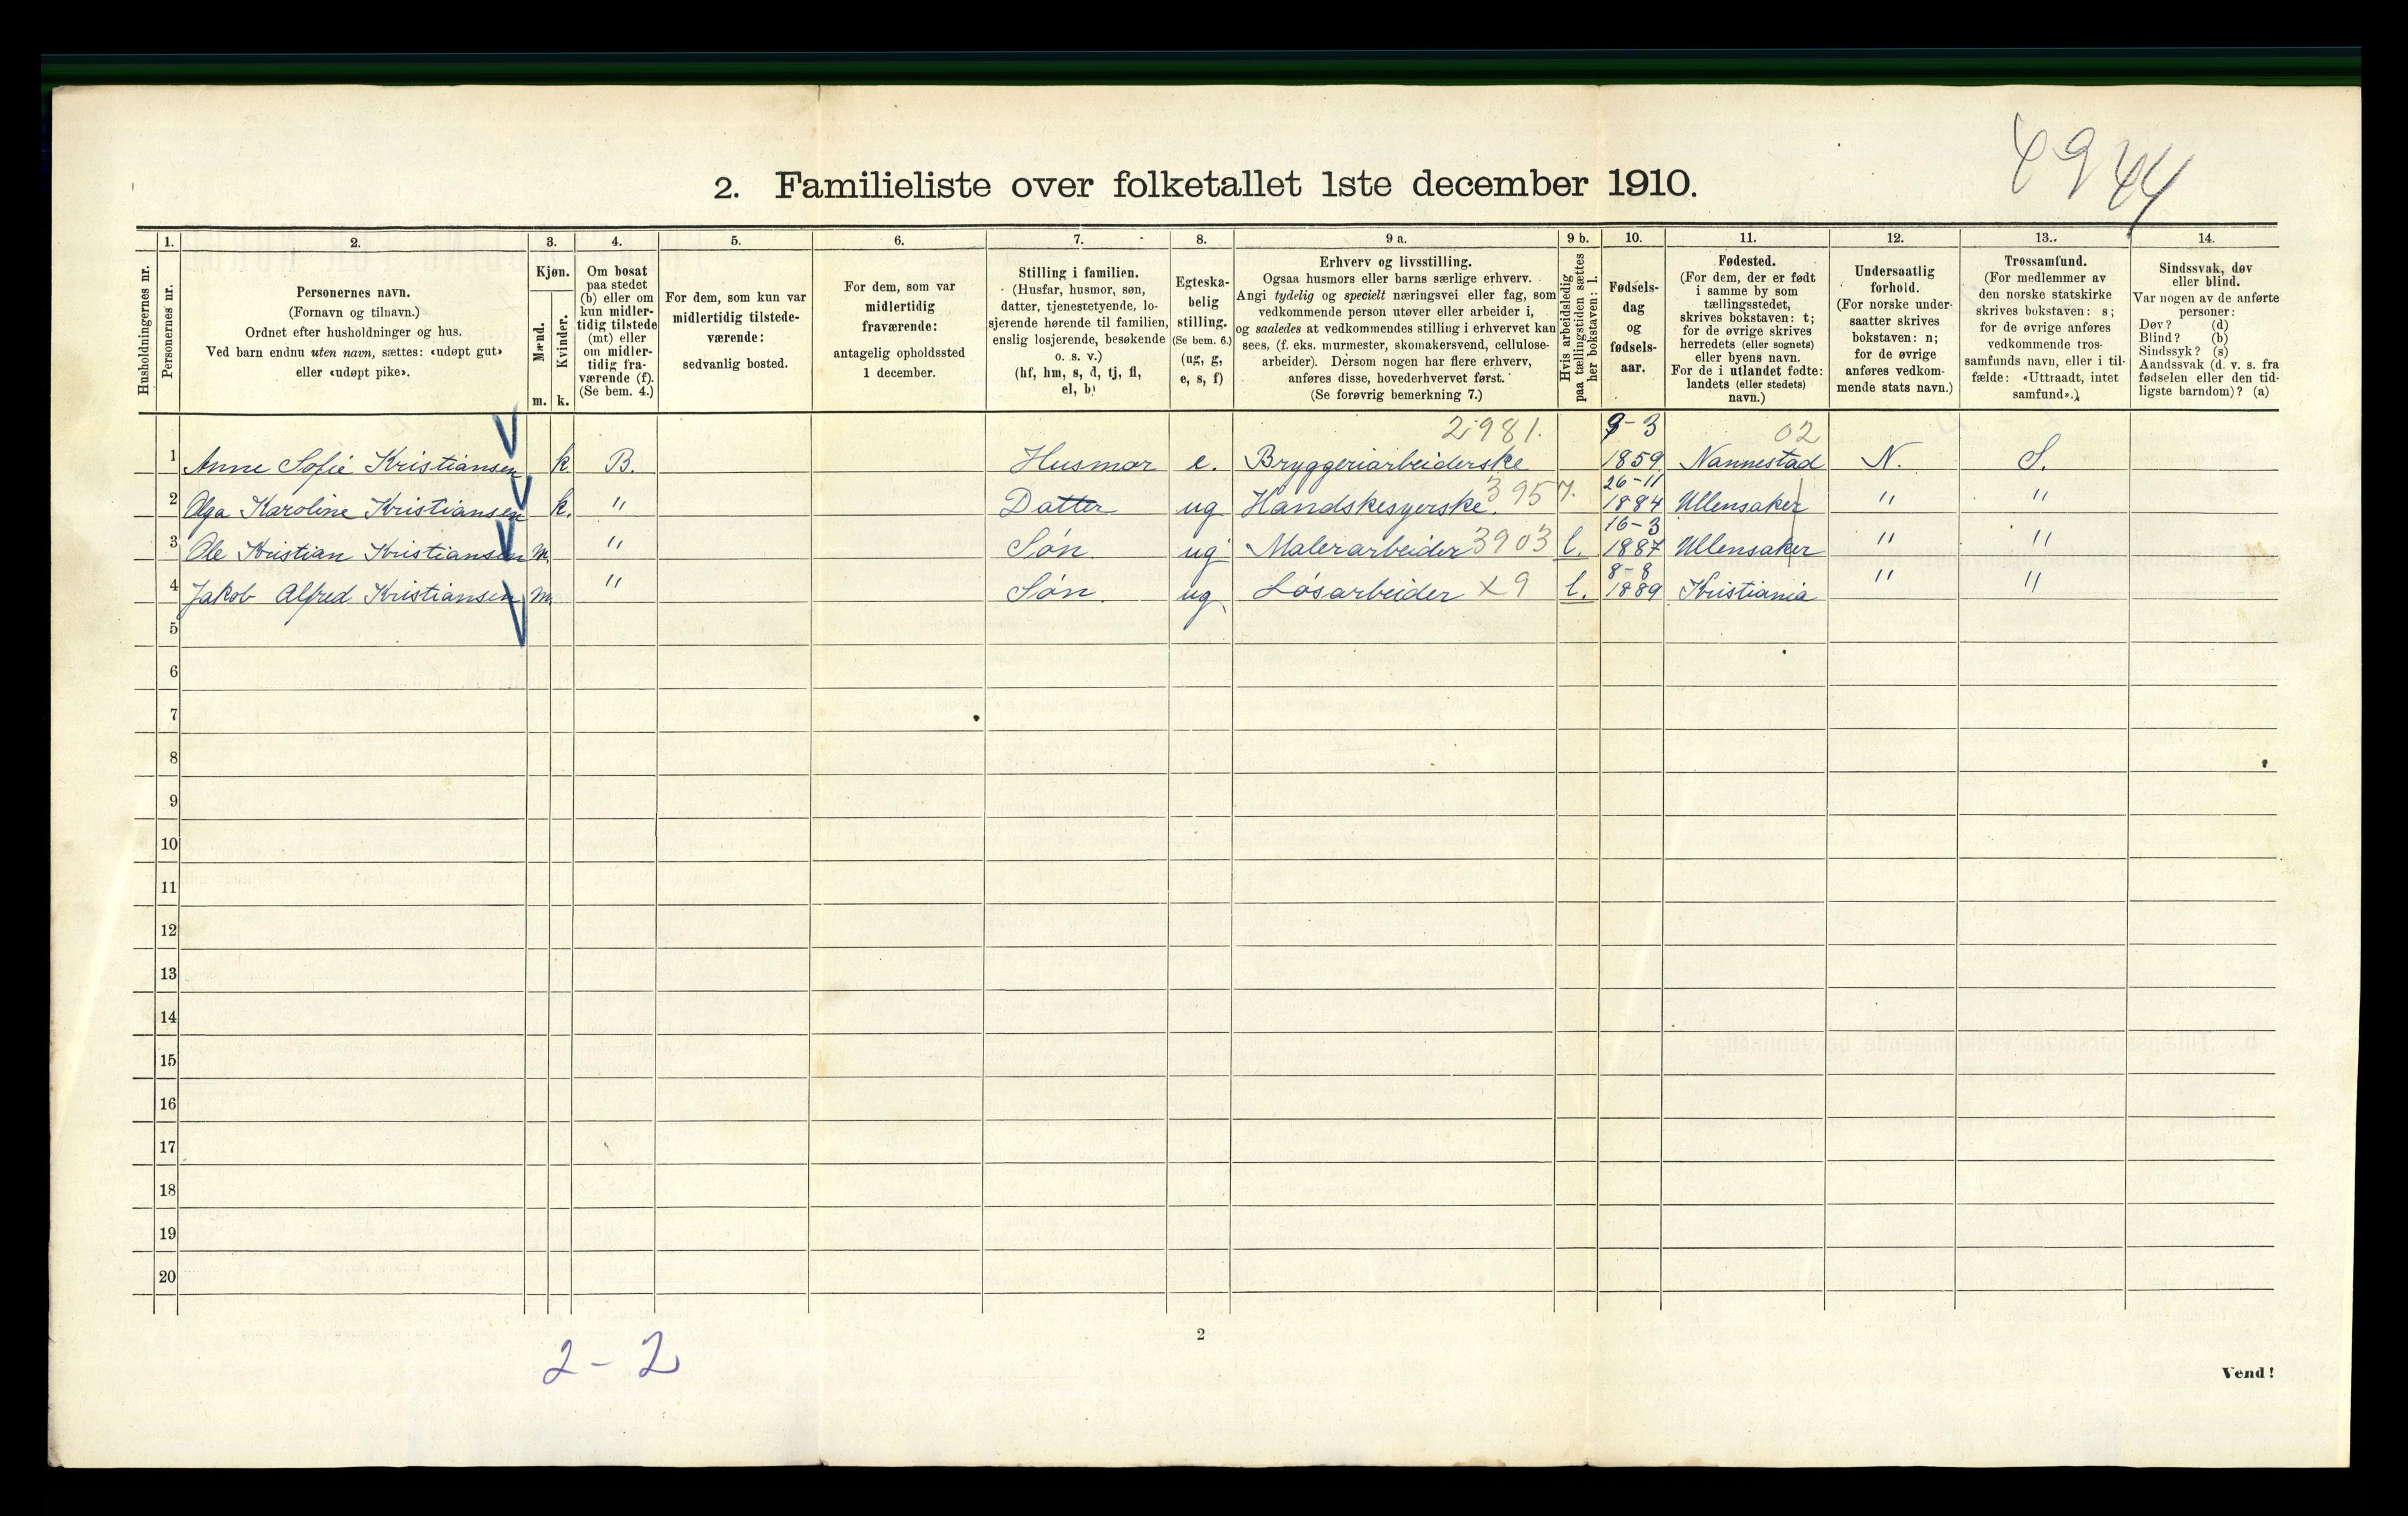 4944
2. Familieliste over folketallet 1ste december 1910.
Husholdningernes nr.
1. Personernes nr.
2. Personernes navn.
(Fornavn og tilnavn.)
Ordnet efter husholdninger og hus.
Ved barn endnu uten navn, sættes: «udøpt gut»
eller «udøpt pike».
3. Kjøn.
Mænd. m.
Kvinder. k.
4. Om bosat
paa stedet
(b) eller om
kun midler-
tidig tilstede
(mt) eller
om midler-
tidig fra-
værende (f).
(Se bem. 4.)
5. For dem, som kun var
midlertidig tilstede-
værende:
sedvanlig bosted.
6. For dem, som var
midlertidig
fraværende:
antagelig opholdssted
1 december.
7. Stilling i familien.
(Husfar, husmor, søn,
datter, tjenestetyende, lo-
sjerende hørende til familien,
enslig losjerende, besøkende
o. s. v.)
(hf, hm, s, d, tj, fl,
el, b)
8. Egteska-
belig
stilling.
(Se bem. 6.)
(ug, g,
e, s, f)
9 a. Erhverv og livsstilling.
Ogsaa husmors eller barns særlige erhverv.
Angi tydelig og specielt næringsvei eller fag, som
vedkommende person utøver eller arbeider i,
og saaledes at vedkommendes stilling i erhvervet kan
sees, (f. eks. murmester, skomakersvend, cellulose-
arbeider). Dersom nogen har flere erhverv,
anføres disse, hovederhvervet først.
(Se forøvrig bemerkning 7.)
9 b. Hvis arbeidsledig
paa tællingstiden sættes
her bokstaven: l.
10. Fødsels-
dag
og
fødsels-
aar.
11. Fødested.
(For dem, der er født
i samme by som
tællingsstedet,
skrives bokstaven: t;
for de øvrige skrives
herredets (eller sognets)
eller byens navn.
For de i utlandet fødte:
landets (eller stedets)
navn.)
12. Undersaatlig
forhold.
(For norske under-
saatter skrives
bokstaven: n;
for de øvrige
anføres vedkom-
mende stats navn.)
13. Trossamfund.
(For medlemmer av
den norske statskirke
skrives bokstaven: s;
for de øvrige anføres
vedkommende tros-
samfunds navn, eller i til-
fælde: «Uttraadt, intet
samfund».)
14. Sindssvak, døv
eller blind.
Var nogen av de anførte
personer:
Døv? (d)
Blind? (b)
Sindssyk? (s)
Aandssvak (d. v. s. fra
fødselen eller den tid-
ligste barndom)? (a)
2981. 9-3 02
1 Anne Sofie Kristiansen k. B. Husmor e. Bryggeriarbeiderske 1859 Nannestad N. S.
26-11
2 Olga Karoline Kristiansen k. " Datter ug Handskesyerske. 3957. 1884 Ullensaker " "
16-3
3 Ole Kristian Kristiansen m. " Søn. ug Malerarbeider 3903 l. 1887 Ullensaker " "
8-8
4 Jakob Alfred Kristiansen m. " Søn. ug. Løsarbeider X9 l. 1889 Kristiania " "
5
6
7
8
9
10
11
12
13
14
15
16
17
18
19
20
2
2-2
Vend!